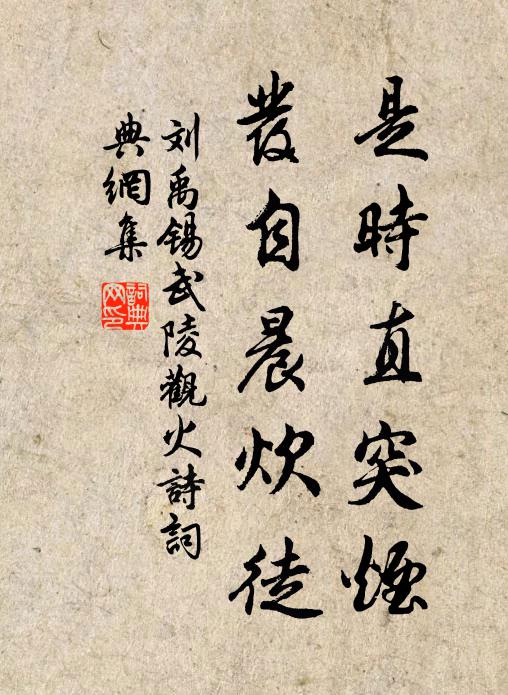 是時直突煙
發自晨炊徒
刘禹锡武陵觀火詩詞
典網集
詞典网印